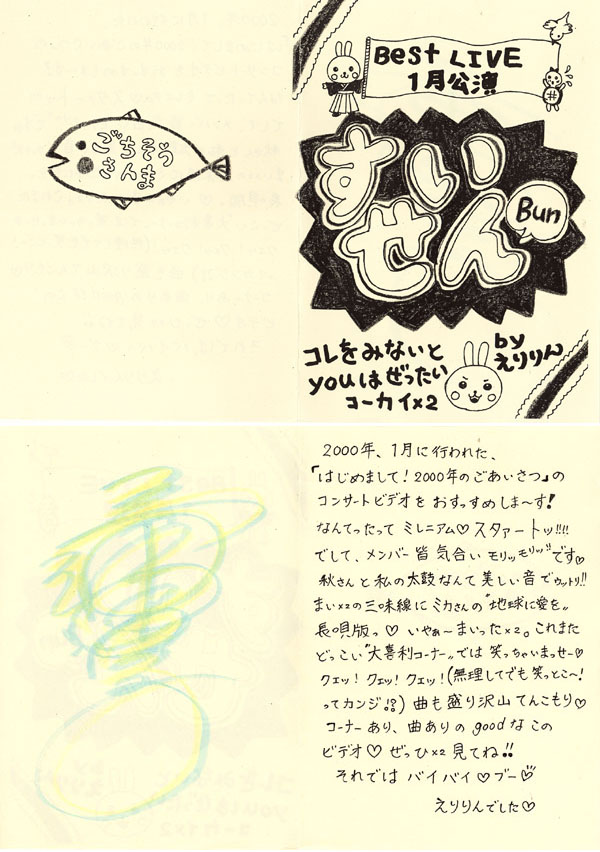 ごちそう
さんま
Best LIVE
1月公演
すい
せん
Bun
コレをみないと
youはぜったい
コーカイ×2
by
えりりん
2000年、1月に行われた、
「はじめまして!2000年のごあいさつ」の
コンサートビデオをおすっすめしま〜す!
なんてったって ミレニアム♡スタァートッ!!!!
でして、メンバー皆気合いモリッモリッ♡です♡
秋さんと私の太鼓なんて美しい音でウットリ!!
まい×2の三味線にミカさんの〝地球に愛を〟
長唄版っ♡ いやぁ〜まいった×2。これまた
どっこい〝大喜利コーナー〟では笑っちゃいまっせー♡
クェッ!クェッ!クェッ!(無理してでも笑っとこ〜!
ってカンジ!?) 曲も盛り沢山てんこもり♡
コーナーあり、曲ありのgoodなこの
ビデオ♡ ぜっひ×2見てね!!
それでは バイバイ♡ブー
えりりんでした♡